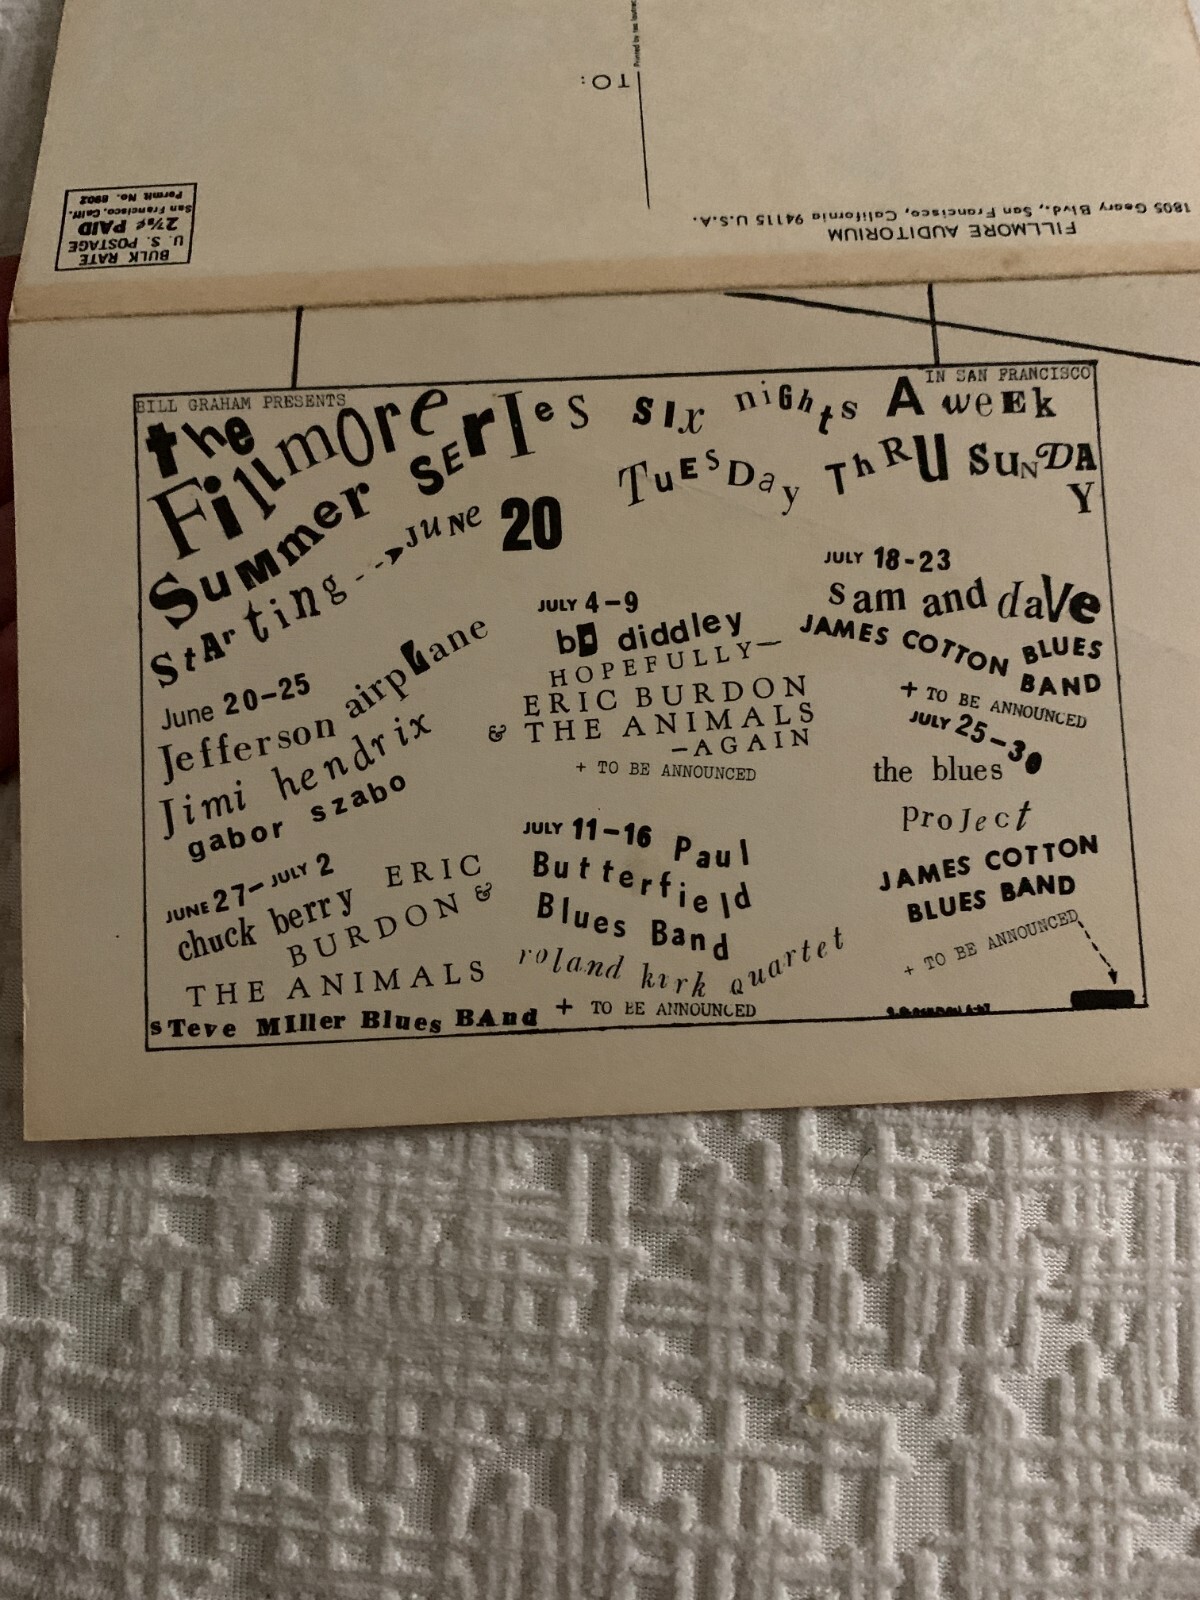 TO:
FILLMORE AUDITORIUM
1805 Geary Blvd., San Francisco, California 94115 U.S.A.
BULK RATE
U. S. POSTAGE
2⅞¢ PAID
San Francisco, Calif.
Permit No. 8902
BILL GRAHAM PRESENTS
IN SAN FRANCISCO
the
Fillmore
Summer SErIes
StArting --->JUNE 20
SIx nights A weEk
TUESDay ThRU SUNDAY
June 20-25
Jefferson airpLane
Jimi hendrix
gabor szabo
JUNE 27-JULY 2
chuck berry ERIC
BURDON &
THE ANIMALS
sTeve MIller Blues BAnd
JULY 4-9
bo diddley
HOPEFULLY—
ERIC BURDON
& THE ANIMALS
—AGAIN
+ TO BE ANNOUNCED
JULY 11-16 Paul
Butterfield
Blues Band
roland kirk quartet
+ TO BE ANNOUNCED
JULY 18-23
sam and daVe
JAMES COTTON BLUES
BAND
+ TO BE ANNOUNCED
JULY 25-30
the blues
ProJect
JAMES COTTON
BLUES BAND
+ TO BE ANNOUNCED